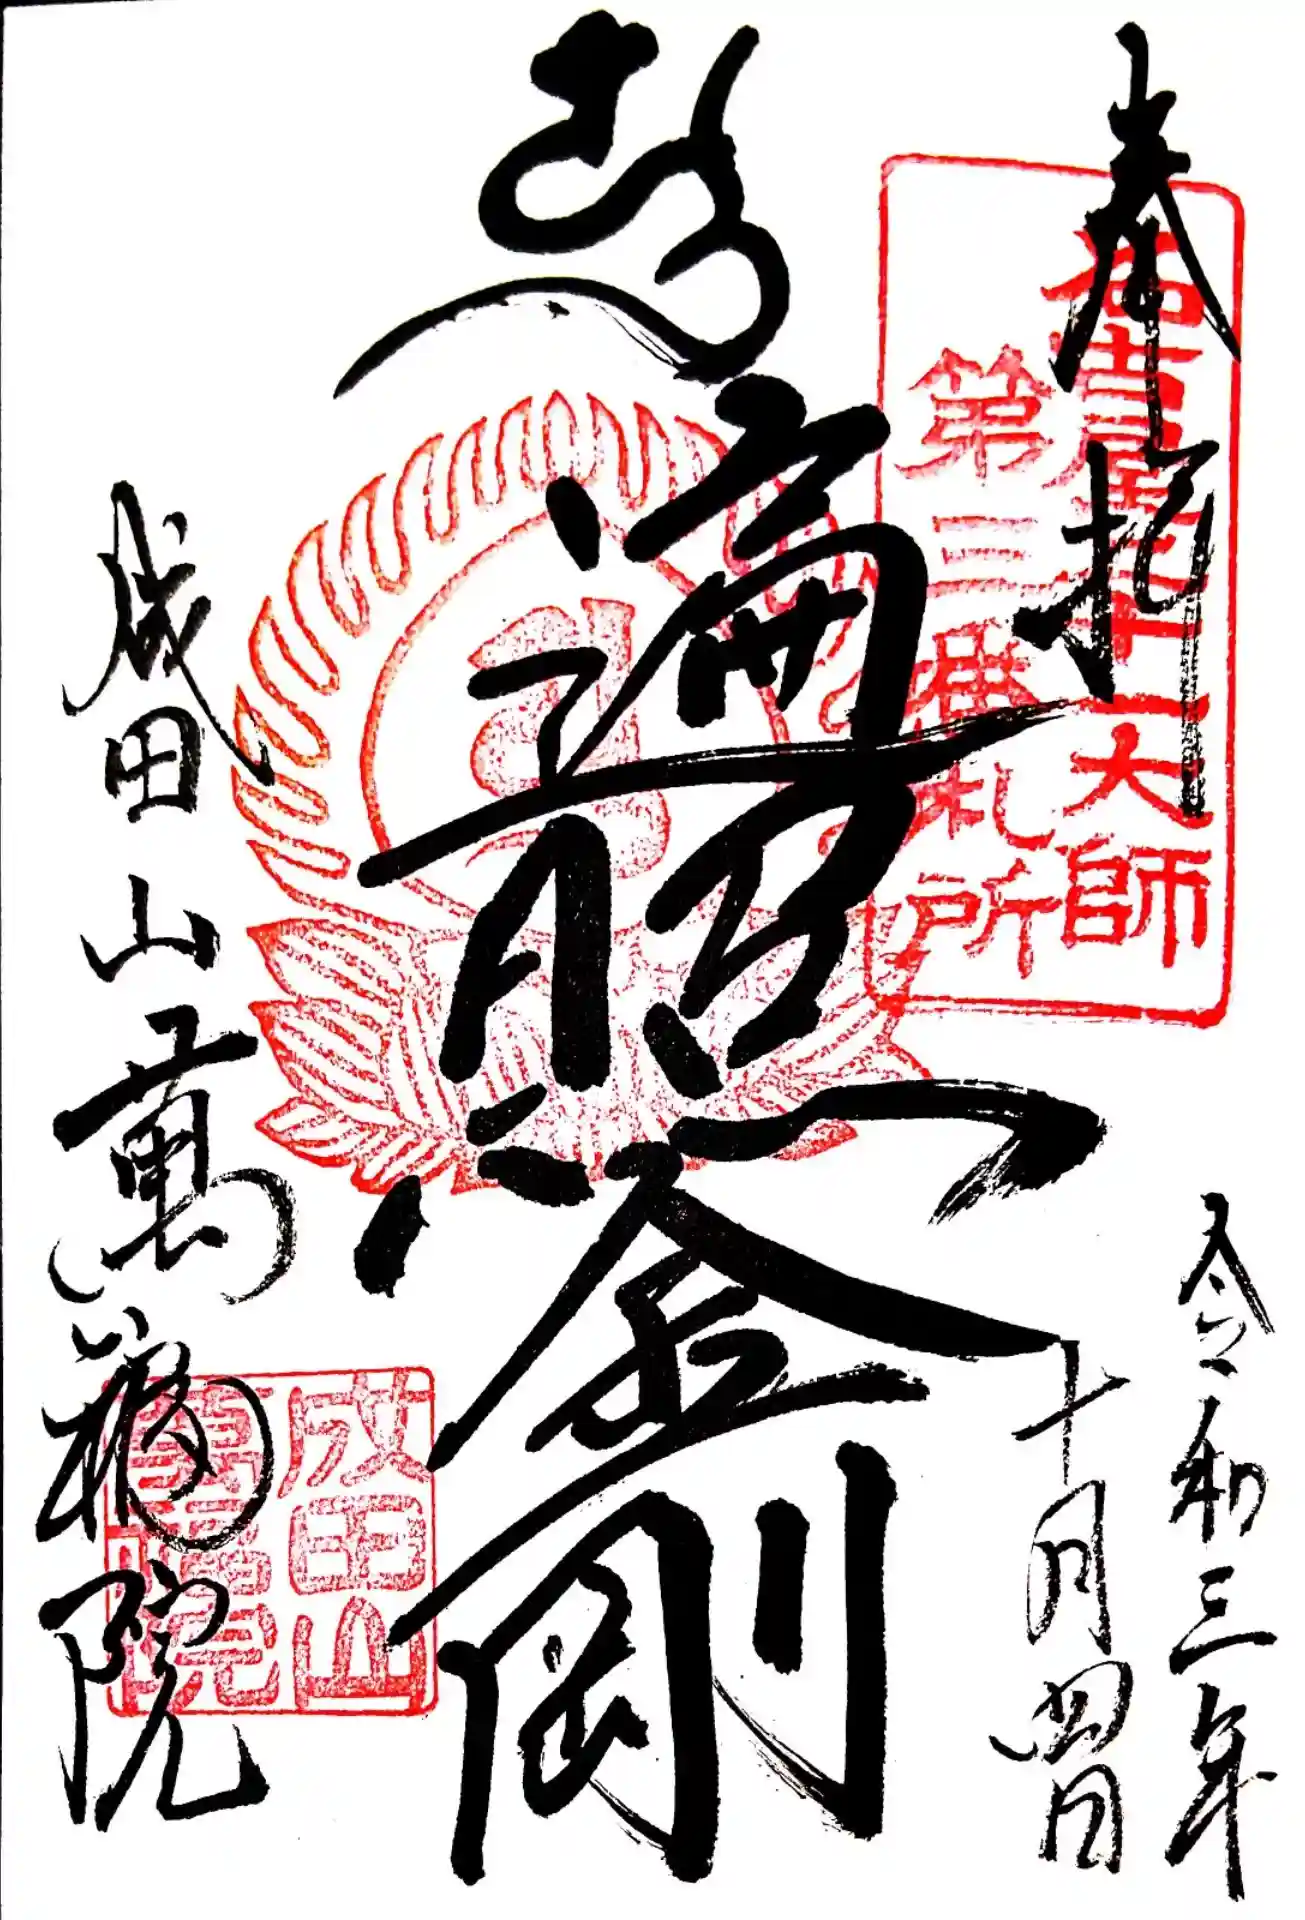 奉拝
名古屋廿一大師
第三番札所
令和三年
十月四日
遍照金剛
成田山萬福院
成田山
萬福院